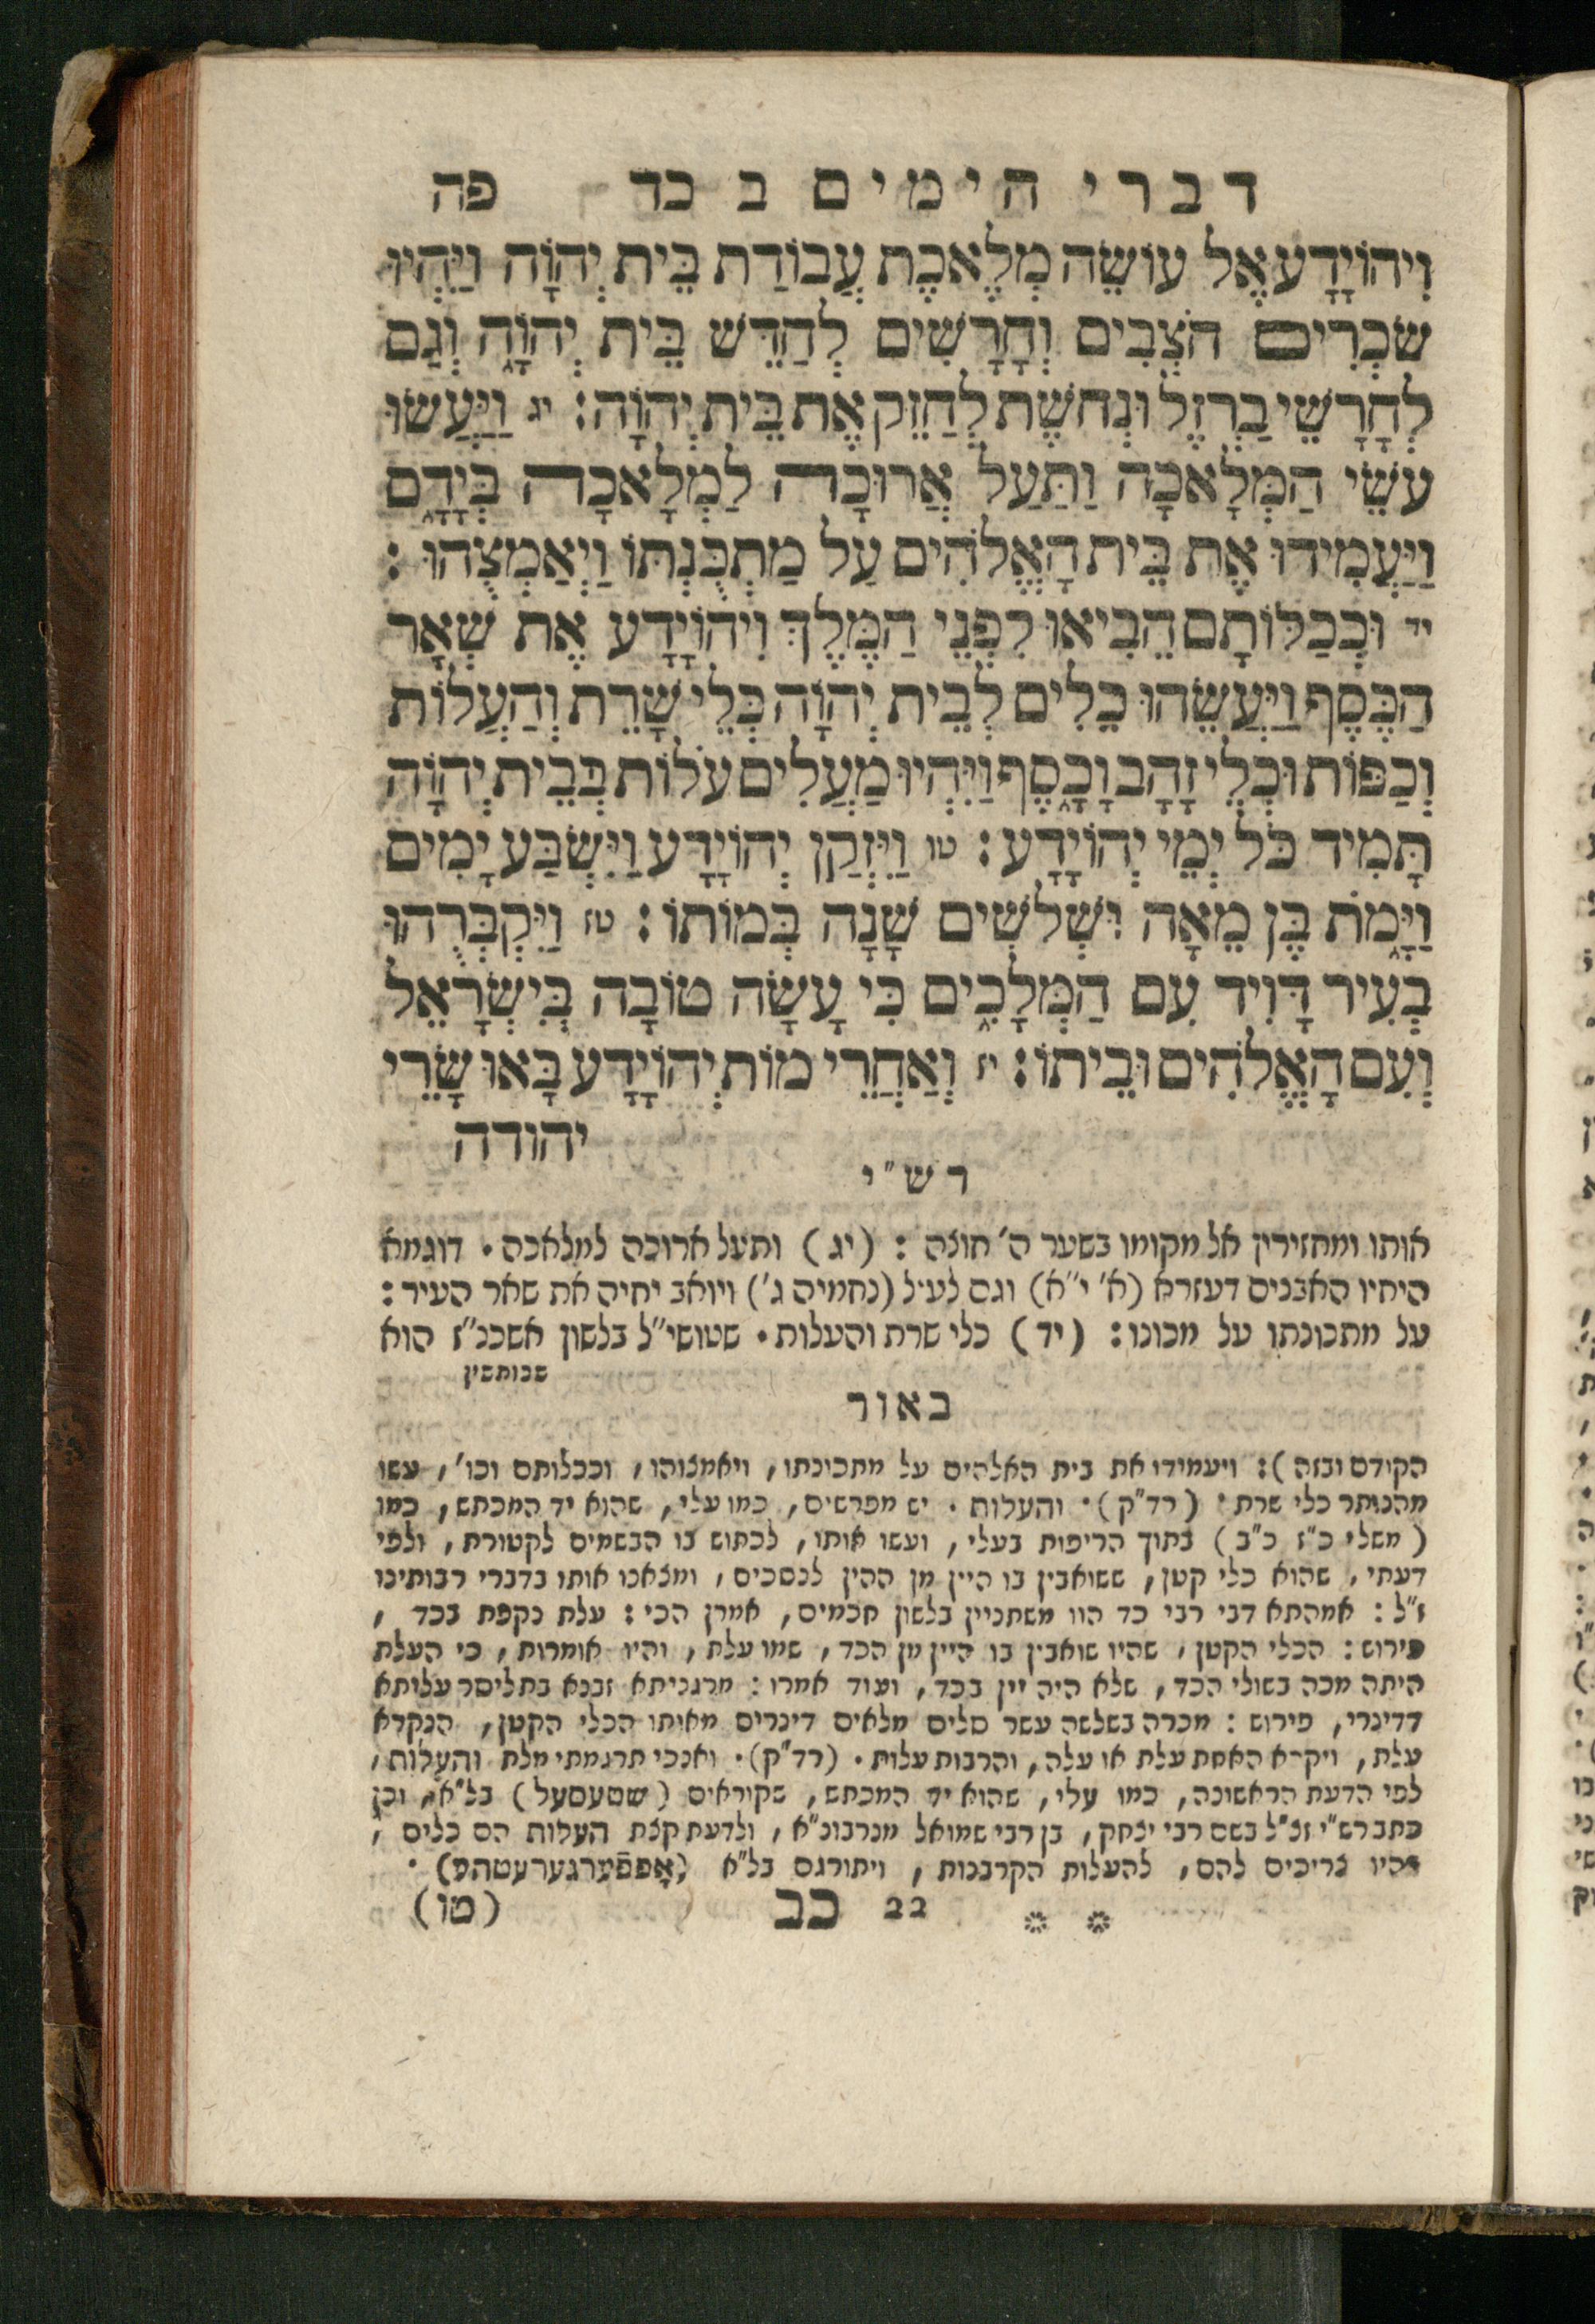 דברי הימים ב כד פה
וִיהוֹיָדָע אֶל עוֹשֵׂה מְלֶאכֶת עֲבוֹדַת בֵּית יְהוָה וַיִּהְיוּ
שֹׂכְרִים חֹצְבִים וְחָרָשִׁים לְחַדֵּשׁ בֵּית יְהוָה וְגַם
לְחָרָשֵׁי בַרְזֶל וּנְחֹשֶׁת לְחַזֵּק אֶת בֵּית יְהוָה׃ יג וַיַּעֲשׂוּ
עֹשֵׂי הַמְּלָאכָה וַתַּעַל אֲרוּכָה לַמְּלָאכָה בְּיָדָם
וַיַּעֲמִידוּ אֶת בֵּית הָאֱלֹהִים עַל מַתְכֻּנְתּוֹ וַיְאַמְּצֻהוּ׃
יד וּכְכַלּוֹתָם הֵבִיאוּ לִפְנֵי הַמֶּלֶךְ וִיהוֹיָדָע אֶת שְׁאָר
הַכֶּסֶף וַיַּעֲשֵׂהוּ כֵלִים לְבֵית יְהוָה כְּלֵי שָׁרֵת וְהַעֲלוֹת
וְכַפּוֹת וּכְלֵי זָהָב וָכָסֶף וַיִּהְיוּ מַעֲלִים עֹלוֹת בְּבֵית יְהוָה
תָּמִיד כֹּל יְמֵי יְהוֹיָדָע׃ טו וַיִּזְקַן יְהוֹיָדָע וַיִּשְׂבַּע יָמִים
וַיָּמֹת בֶּן מֵאָה וּשְׁלֹשִׁים שָׁנָה בְּמוֹתוֹ׃ טז וַיִּקְבְּרֻהוּ
בְעִיר דָּוִיד עִם הַמְּלָכִים כִּי עָשָׂה טוֹבָה בְּיִשְׂרָאֵל
וְעִם הָאֱלֹהִים וּבֵיתוֹ׃ יז וְאַחֲרֵי מוֹת יְהוֹיָדָע בָּאוּ שָׂרֵי
יהודה
רש״י
אותו ומחזירין אל מקומו בשער ה׳ חוצה : (יג) ותעל ארוכה למלאכה · דוגמא
היחיו האבנים דעזרא (א׳ י״א) וגם לעיל (נחמיה ג׳) ויואב יחיה את שאר העיר :
על מתכונתו על מכונו : (יד) כלי שרת והעלות · שטושי״ל בלשון אשכנ״ז הוא
שבותשין
באור
הקודם ובזה) : ויעמידו את בית האלהים על מתכונתו, ויאמצוהו, וככלותם וכו׳, עשו
מהנותר כלי שרת · (רד״ק) · והעלות · יש מפרשים, כמו עלי, שהוא יד המכתש, כמו
(משלי כ״ז כ״ב) בתוך הריפות בעלי, ועשו אותו, לכתוש בו הבשמים לקטורת, ולפי
דעתי, שהוא כלי קטן, ששואבין בו היין מן ההין לנסכים, ומצאנו אותו בדברי רבותינו
ז״ל : אמהתא דבי רבי כד הוו משתניין בלשון חכמים, אמרן הכי : עלת נקפת בכד,
פירוש : הכלי הקטן, שהיו שואבין בו היין מן הכד, שמו עלת, והיו אומרות, כי העלת
היתה מכה בשולי הכד, שלא היה יין בכד, ועוד אמרו : מרגניתא זבנא בתליסר עלותא
דדינרי, פירוש : מכרה בשלשה עשר סלים מלאים דינרים מאותו הכלי הקטן, הנקרא
עלת, ויקרא האחת עלת או עלה, והרבות עלות · (רד״ק) · ואנכי תרגמתי מלת והעלות,
לפי הדעת הראשונה, כמו עלי, שהוא יד המכתש, שקוראים (שטעסעל) בל״א, וכן
כתב רש״י זצ״ל בשם רבי יצחק, בן רבי שמואל מנרבונ״א, ולדעת קצת העלות הם כלים,
והיו צריכים להם, להעלות הקרבנות, ויתורגם בל״א (אָפּפֿערגערעטהע) ·
* * 22 כב (טו)